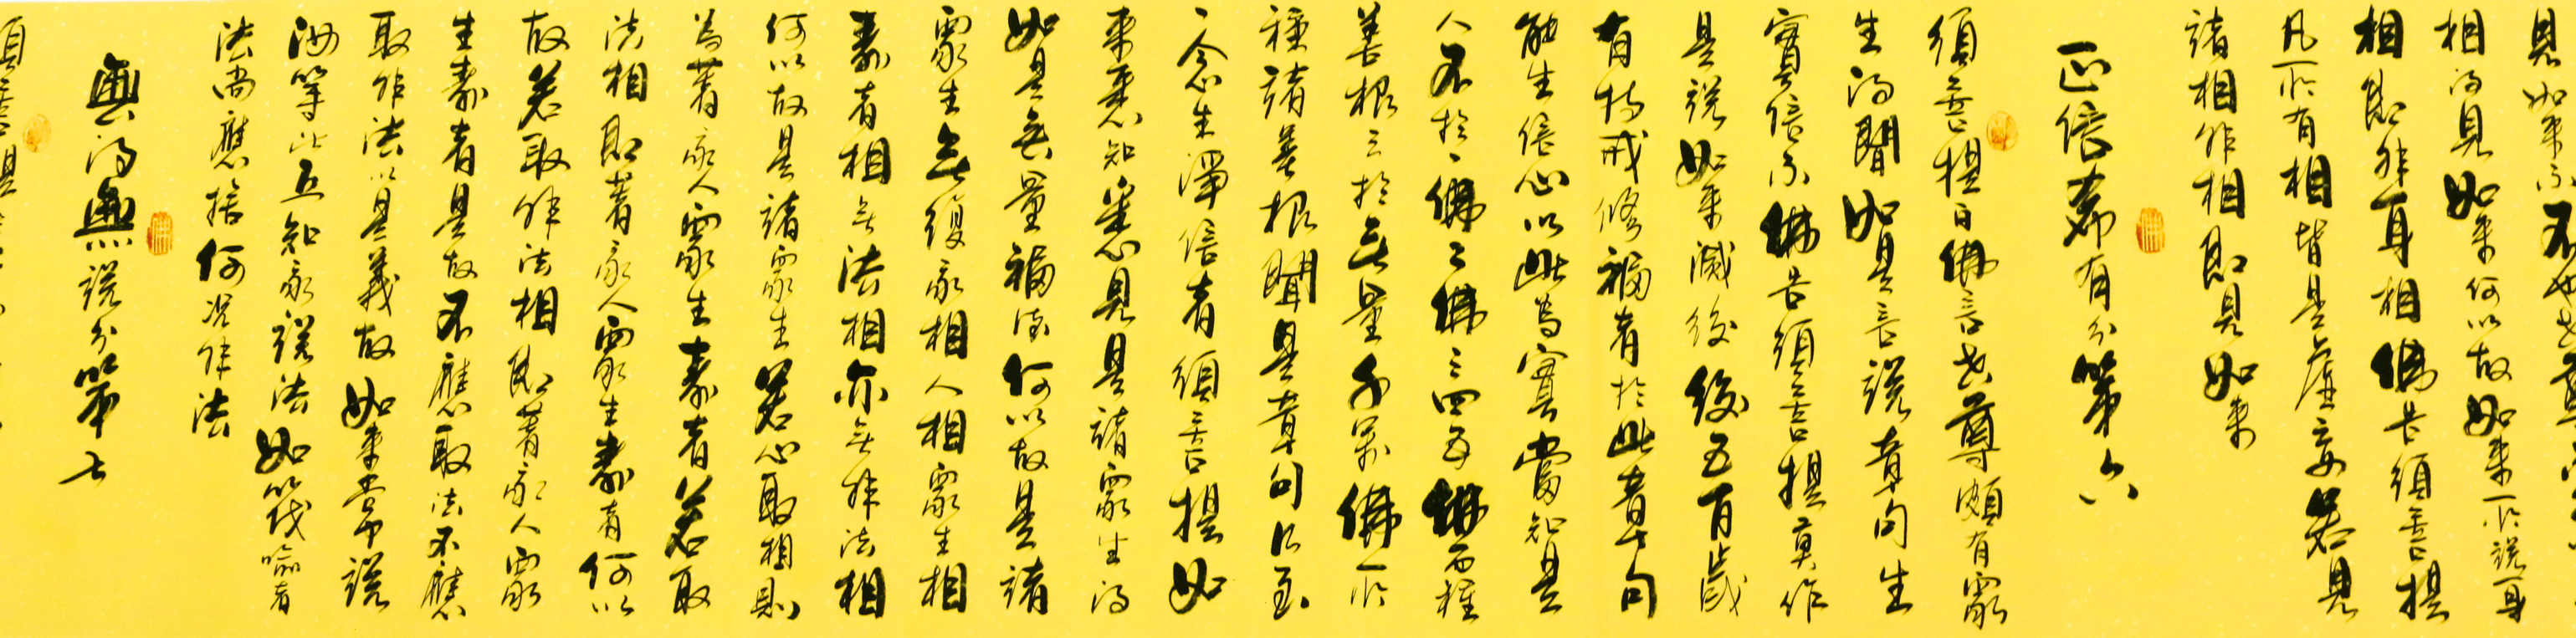 見如來不不也世尊
相得見如來何以故如來所說身
相即非身相佛告須菩提
凡所有相皆是虛妄若見
諸相非相即見如來
正信希有分第六
須菩提白佛言世尊頗有眾
生得聞如是言說章句生
實信不佛告須菩提莫作
是說如來滅後後五百歲
有持戒修福者於此章句
能生信心以此為實當知是
人不於一佛二佛三四五佛而種
善根已於無量千萬佛所
種諸善根聞是章句乃至
一念生淨信者須菩提如
來悉知悉見是諸眾生得
如是無量福德何以故是諸
眾生無復我相人相眾生相
壽者相無法相亦無非法相
何以故是諸眾生若心取相則
為著我人眾生壽者若取
法相即著我人眾生壽者何以
故若取非法相即著我人眾
生壽者是故不應取法不應
取非法以是義故如來常說
汝等比丘知我說法如筏喻者
法尚應捨何況非法
無得無說分第七